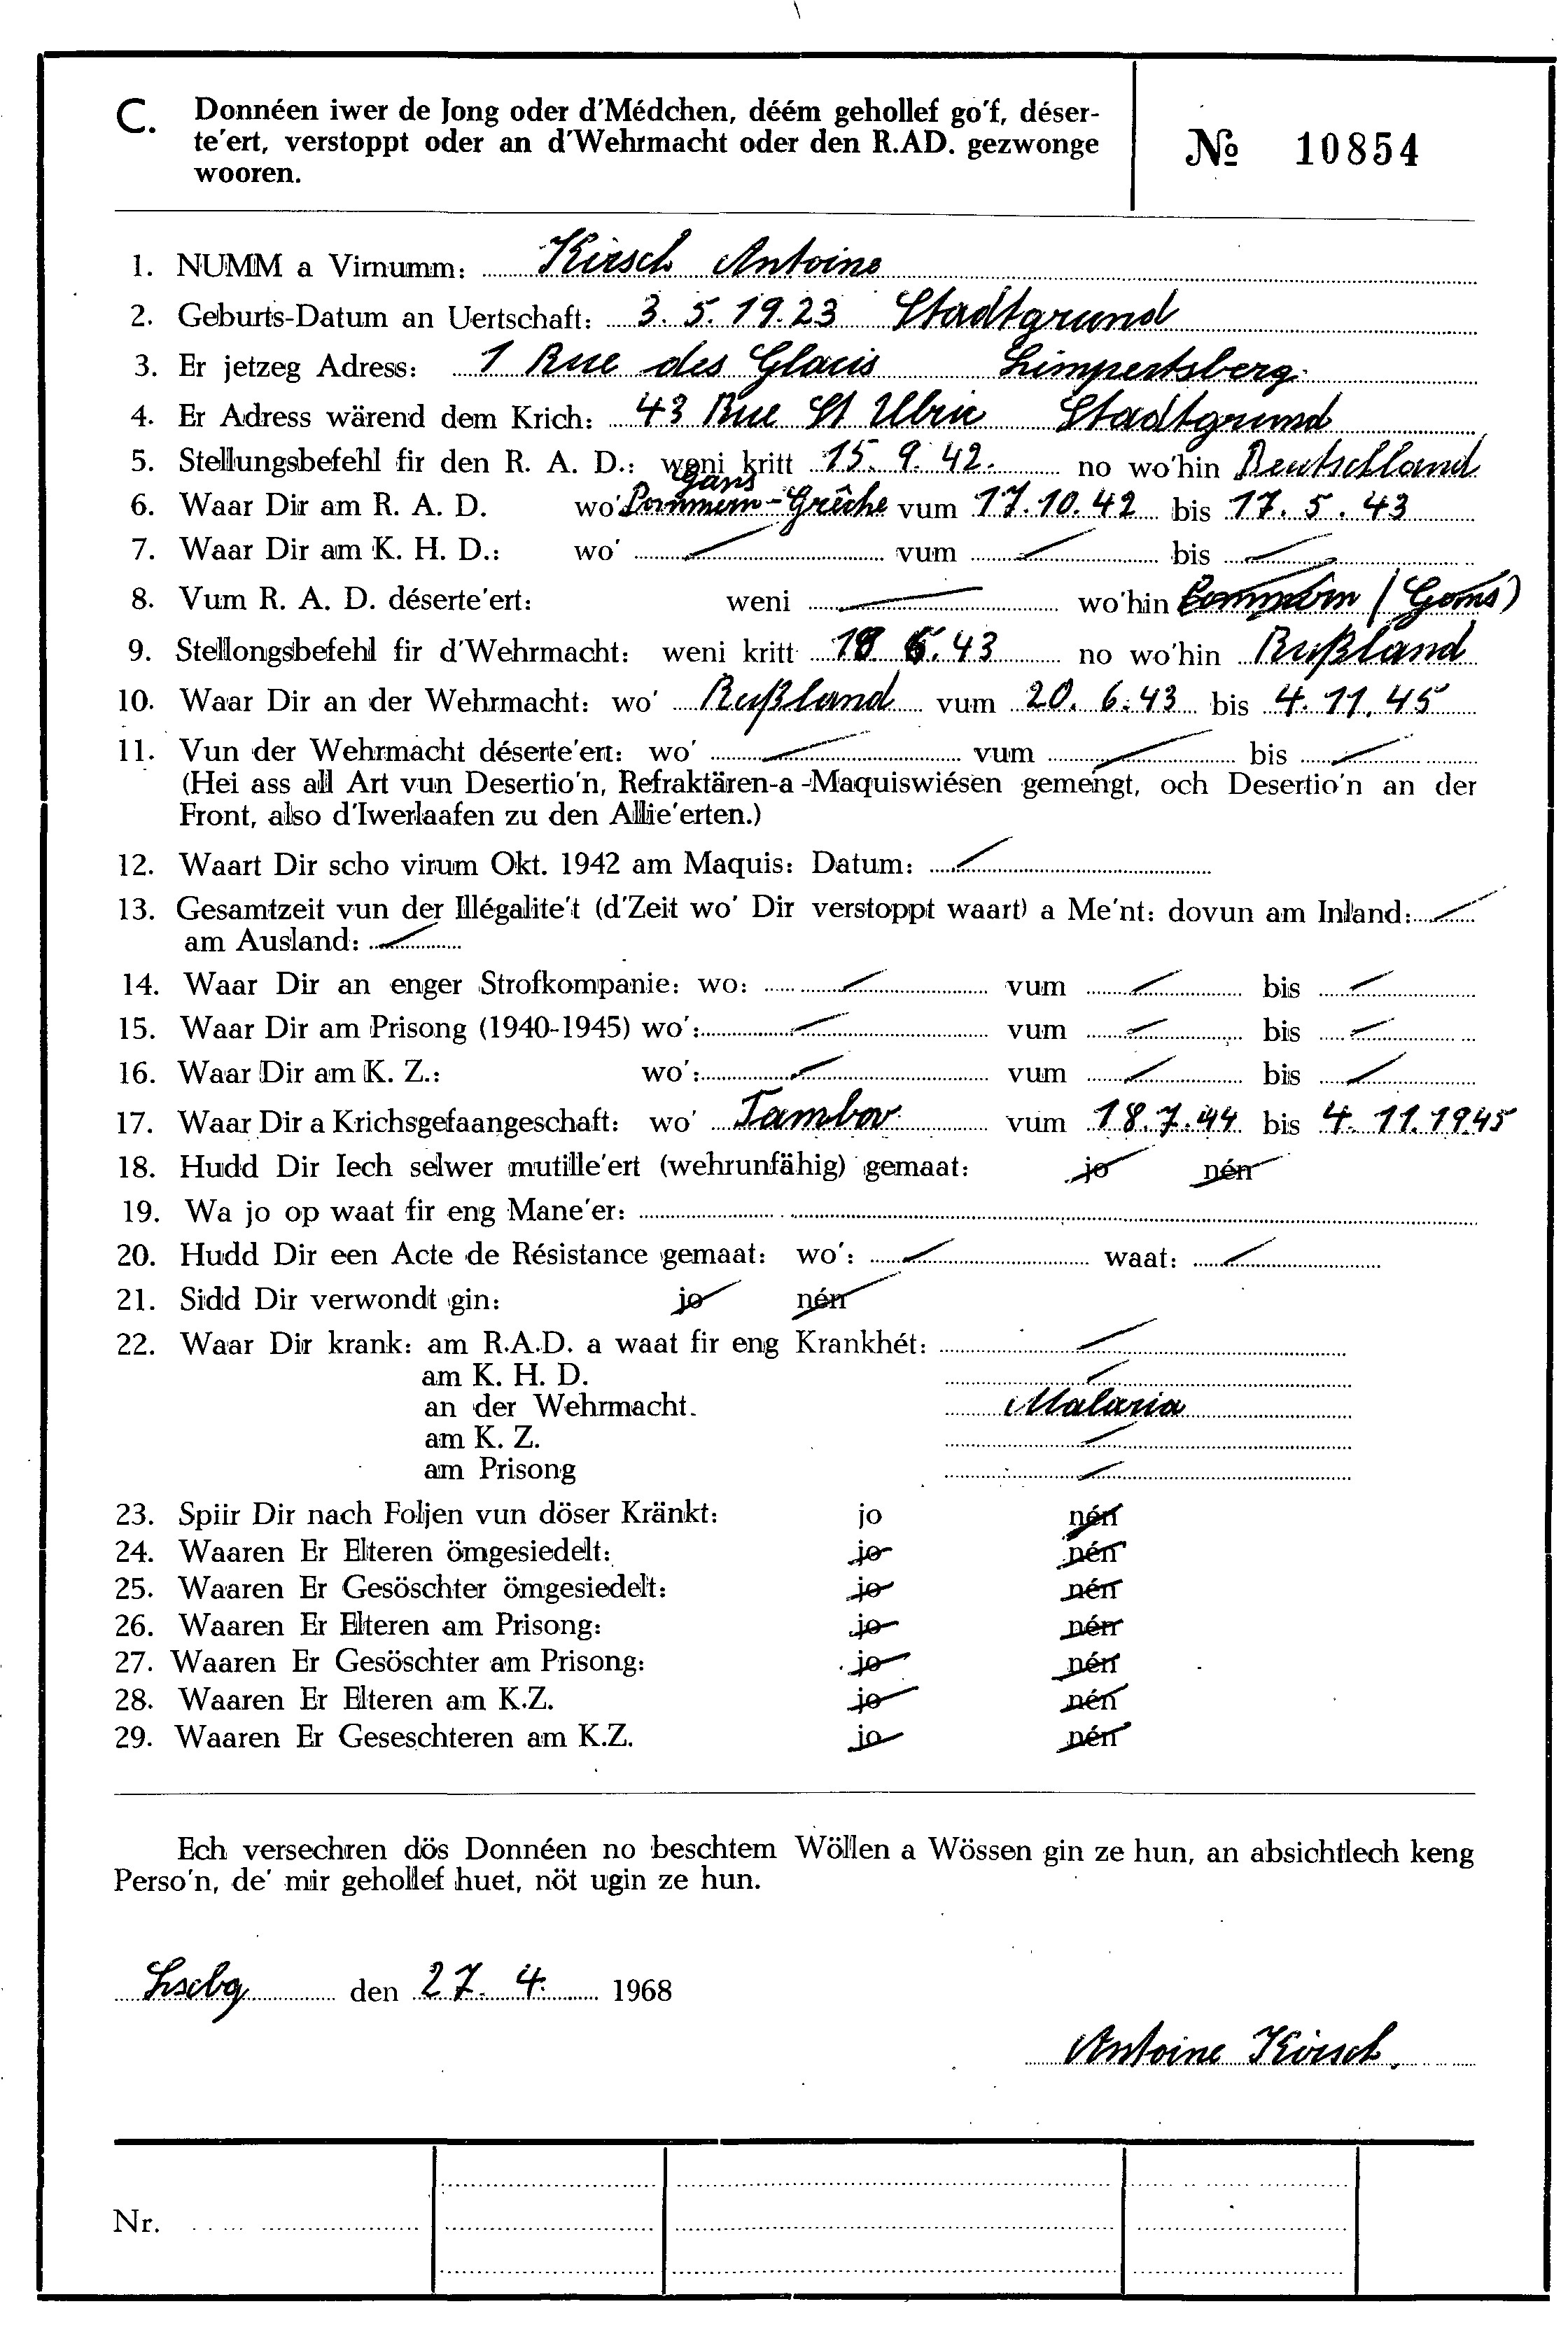 C. Donnéen iwer de Jong oder d'Médchen, déém gehollef go'f, déser-
te'ert, verstoppt oder an d'Wehrmacht oder den R.AD. gezwonge
wooren.
№ 10854
1. NUMM a Virnumm: Kirsch Antoine
2. Geburts-Datum an Uertschaft: 3. 5. 1923 Stadtgrund
3. Er jetzeg Adress: 1 Rue des Glacis Limpertsberg
4. Er Adress wärend dem Krich: 43 Rue St Ulric Stadtgrund
5. Stellungsbefehl fir den R. A. D.: weni kritt 15. 9. 42. no wo'hin Deutschland
Gans
6. Waar Dir am R. A. D. wo' Pommern - vum 17.10.42 bis 17. 5. 43
7. Waar Dir am K. H. D.: wo' vum bis
8. Vum R. A. D. déserte'ert: weni wo'hin Pommern (Gans)
9. Stellongsbefehl fir d'Wehrmacht: weni kritt 18 6. 43 no wo'hin Rußland
10. Waar Dir an der Wehrmacht: wo' Rußland vum 20. 6. 43 bis 4. 11. 45
11. Vun der Wehrmacht déserte'ert: wo' vum bis
(Hei ass all Art vun Desertio'n, Refraktären-a -Maquiswiésen gemengt, och Desertio'n an der
Front, also d'Iwerlaafen zu den Allie'erten.)
12. Waart Dir scho virum Okt. 1942 am Maquis: Datum:
13. Gesamtzeit vun der Illégalite't (d'Zeit wo' Dir verstoppt waart) a Me'nt: dovun am Inland:
am Ausland:
14. Waar Dir an enger Strofkompanie: wo: vum bis
15. Waar Dir am Prisong (1940-1945) wo': vum bis
16. Waar Dir am K. Z.: wo': vum bis
17. Waar Dir a Krichsgefaangeschaft: wo' Tambov vum 18.7.44 bis 4. 11. 1945
18. Hudd Dir Iech selwer mutille'ert (wehrunfähig) gemaat: jo nén
19. Wa jo op waat fir eng Mane'er:
20. Hudd Dir een Acte de Résistance gemaat: wo': waat:
21. Sidd Dir verwondt gin: jo nén
22. Waar Dir krank: am R.A.D. a waat fir eng Krankhét:
am K. H. D.
an der Wehrmacht. Malaria
am K. Z.
am Prisong
23. Spiir Dir nach Foljen vun döser Kränkt: jo nén
24. Waaren Er Elteren ömgesiedelt: jo nén
25. Waaren Er Gesöschter ömgesiedelt: jo nén
26. Waaren Er Elteren am Prisong: jo nén
27. Waaren Er Gesöschter am Prisong: jo nén
28. Waaren Er Elteren am K.Z. jo nén
29. Waaren Er Geseschteren am K.Z. jo nén
Ech versechren dös Donnéen no beschtem Wöllen a Wössen gin ze hun, an absichtlech keng
Perso'n, de' mir gehollef huet, nöt ugin ze hun.
Lxbg den 27. 4. 1968
Antoine Kirsch
Nr.